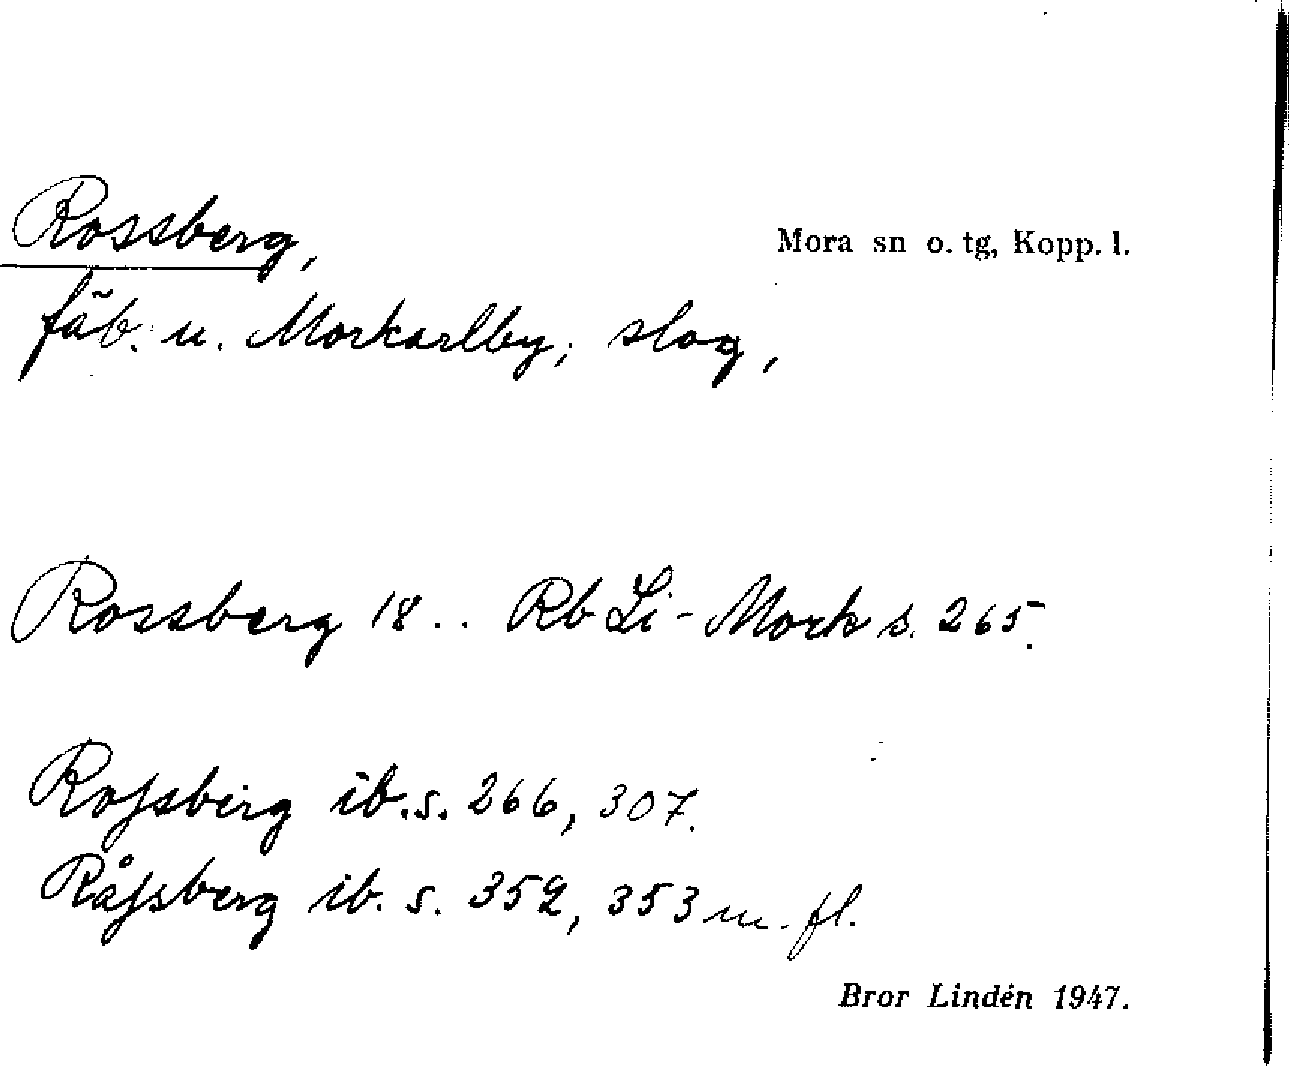 Rossberg,
Mora sn o. tg, Kopp. l.
fäb. u. Morkarlby; slog,
Rossberg 18.. Rb Li-Mork s. 265.
Rossberg ib. s. 266, 307.
Råssberg ib. s. 352, 353 m. fl.
Bror Lindén 1947.